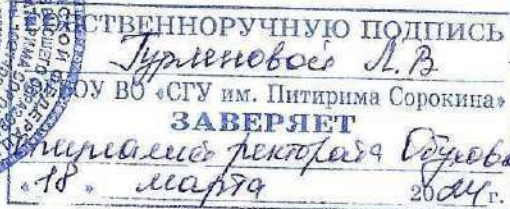 СТВЕННОРУЧНУЮ ПОДПИСЬ
Гурленовой Л.В.
ОУ ВО «СГУ им. Питирима Сорокина»
ЗАВЕРЯЕТ
ректората
«18» марта 2024 г.